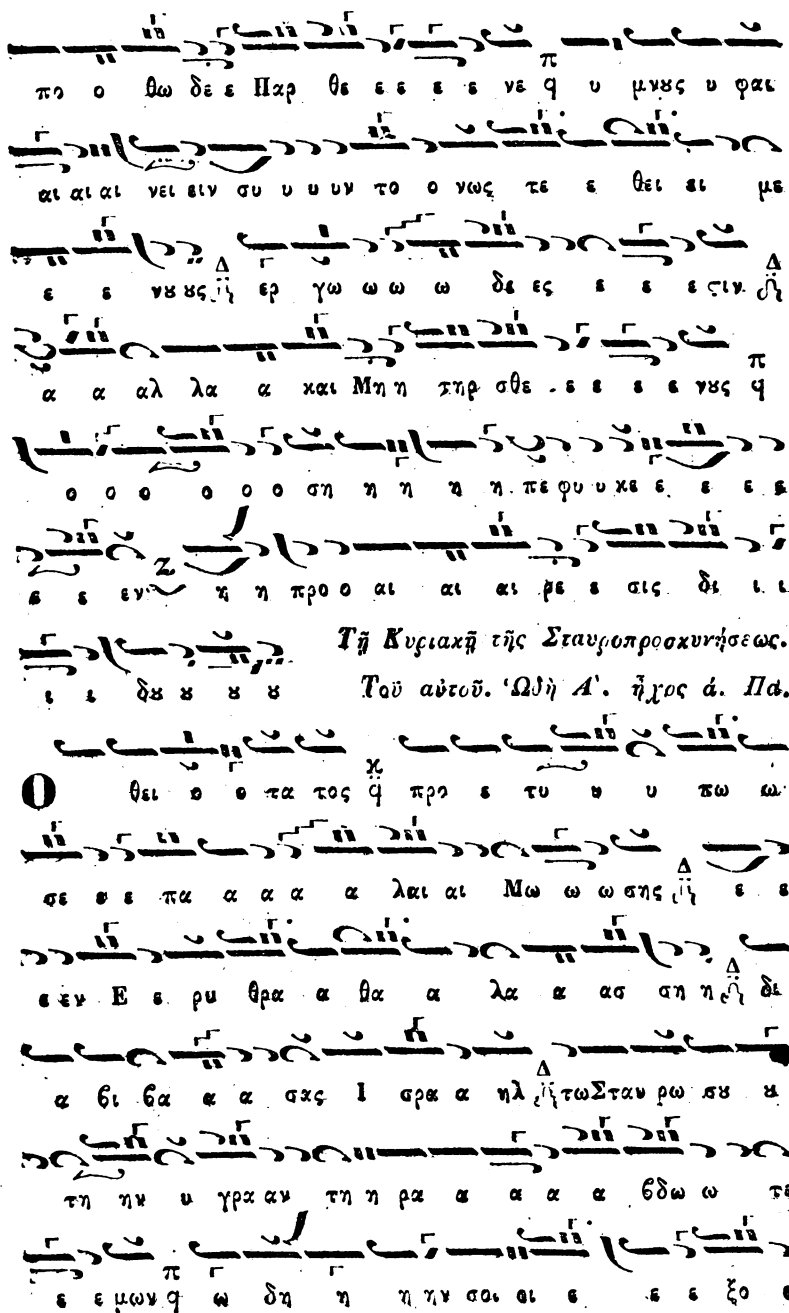 πο ο θω δε ε Παρ θε ε ε ε ε ε νε π q υ μνȣς υ φαι
αι αι αι νει ειν συ υ υ υν το ο νως τε ε θει ει με
ε ε νȣ ȣς Δ ερ γω ω ω ω δε ες ε ε ε ϛιν Δ
α α αλ λα α και Μη η τηρ σθε ε ε ε ε νȣς π q
ο ο ο ο ο ο ση η η η η πε φυ υ κε ε ε ε ε
ε ε εν Ζ κ η προ ο αι αι αι ρε ε σις δι ι ι
ι ι δȣ ȣ ȣ ȣ
Τῇ Κυριακῇ τῆς Σταυροπροσκυνήσεως.
Τοῦ αὐτοῦ. Ὠδὴ Α΄. ἦχος ά. Πα.
Ο θει ο ο τα τος κ q προ ε τυ υ υ πω ω
σε ε ε πα α α α α λαι αι Μω ω ω σης Δ ε ε
ε εν Ε ε ρυ θρα α θα α λα α ασ ση η Δ δι
α βι βα α α σας Ι σρα α ηλ Δ τω Σταυ ρω σȣ ȣ
τη ην υ γρα αν τη η ρα α α α α βδω ω τε
ε ε μων π q ω δη η η ην σοι οι ε ε ε ξο ε